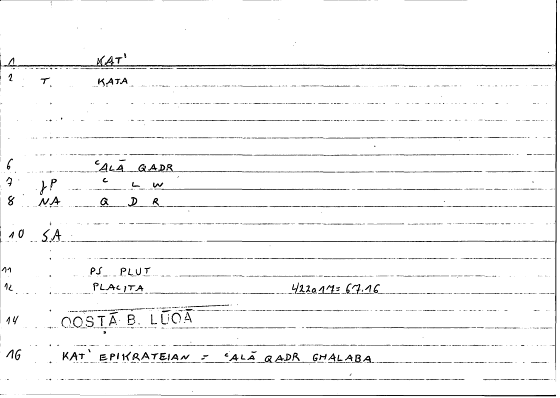 1 KAT'
2 T. KATA
6 ʿALĀ QADR
7 JP ʿ L W
8 NA Q D R
10 SA
11 PS PLUT
12 PLACITA 422a17=67.16
14 QOSṬĀ B. LŪQĀ
16 KAT' EPIKRATEIAN = ʿALĀ QADR GHALABA